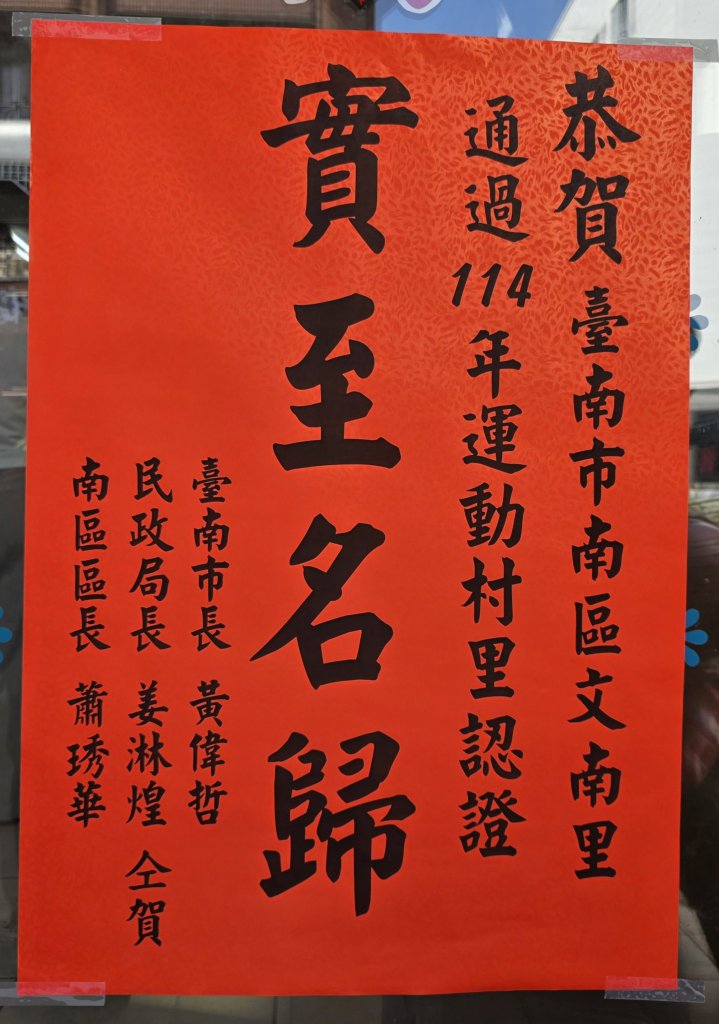 恭賀臺南市南區文南里
通過114年運動村里認證
實至名歸
臺南市長 黃偉哲
民政局長 姜淋煌 仝賀
南區區長 蕭琇華